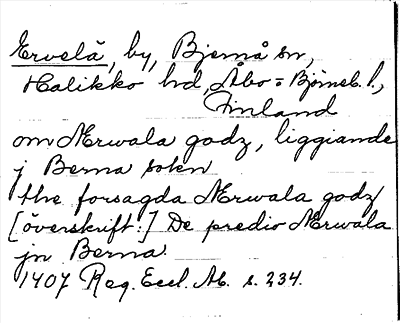 Ervelä, by, Bjernå sn,
Halikko hd, Åbo=Björneb. l.,
Finland
om Ærwala godz, liggiande
j Berna sokn
the forsagda Ærwala godz
[överskrift:] De predio Ærwala
jn Berna.
1407 Reg. Eccl. Ab. s. 234.